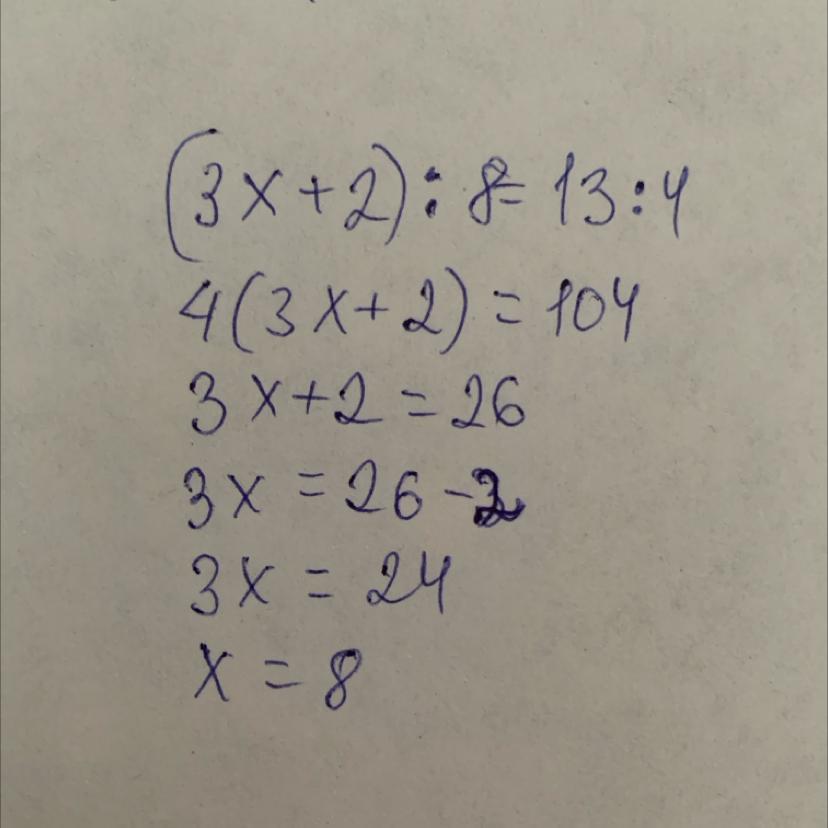 (3x+2):8=13:4
4(3x+2)=104
3x+2=26
3x=26-2
3x=24
x=8